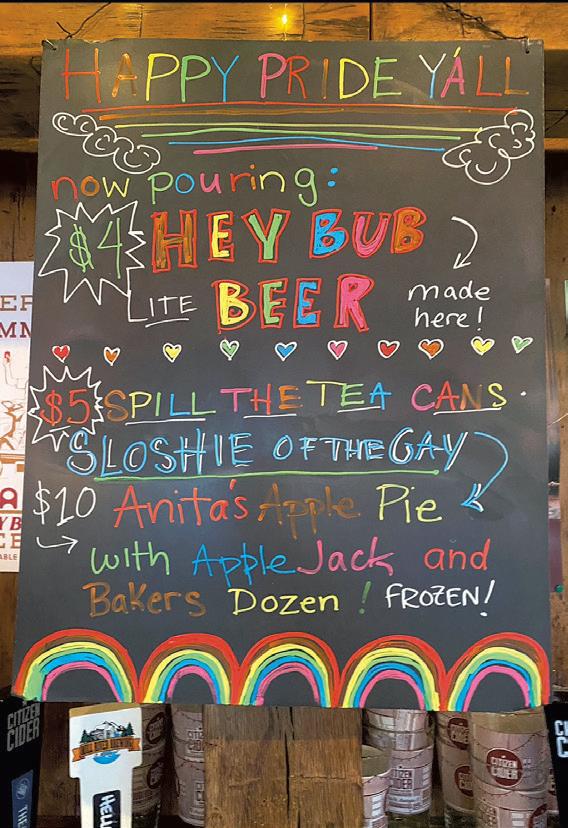 HAPPY PRIDE YÁLL
now pouring:
$4 HEY BUB
LITE BEER made
here!
$5 SPILL THE TEA CANS.
SLOSHIE OF THE GAY
$10 Anita's Apple Pie
with Apple Jack and
Bakers Dozen ! FROZEN!
CITIZEN
CIDER
CITIZEN
CIDER
CITIZEN
CIDER